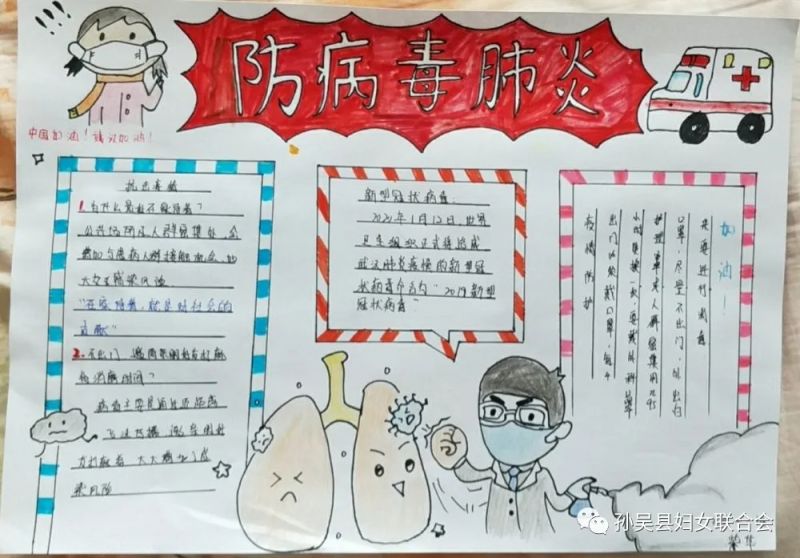 防病毒肺炎
中国加油！武汉加油！
抗击病毒
1.为什么要在家隔离？
公共场所及人群密集处，会
增加与患病人群接触机会，加
大交互感染风险
“在家隔离，就是对社会的
贡献”
2.不出门
病毒主要是通过近距离
飞沫传播
大大增加了感
染风险
新型冠状病毒：
2020年1月12日，世界
卫生组织正式将造成
武汉肺炎疫情的新型冠
状病毒命名为“2019新型
冠状病毒”
加油！
夹要进行消毒
口罩，尽量不出门，外出归
护理重点人群密集用N95
小时更换一次，要戴外科或
出门必须戴口罩，每4
疫情防护
孙吴县妇女联合会